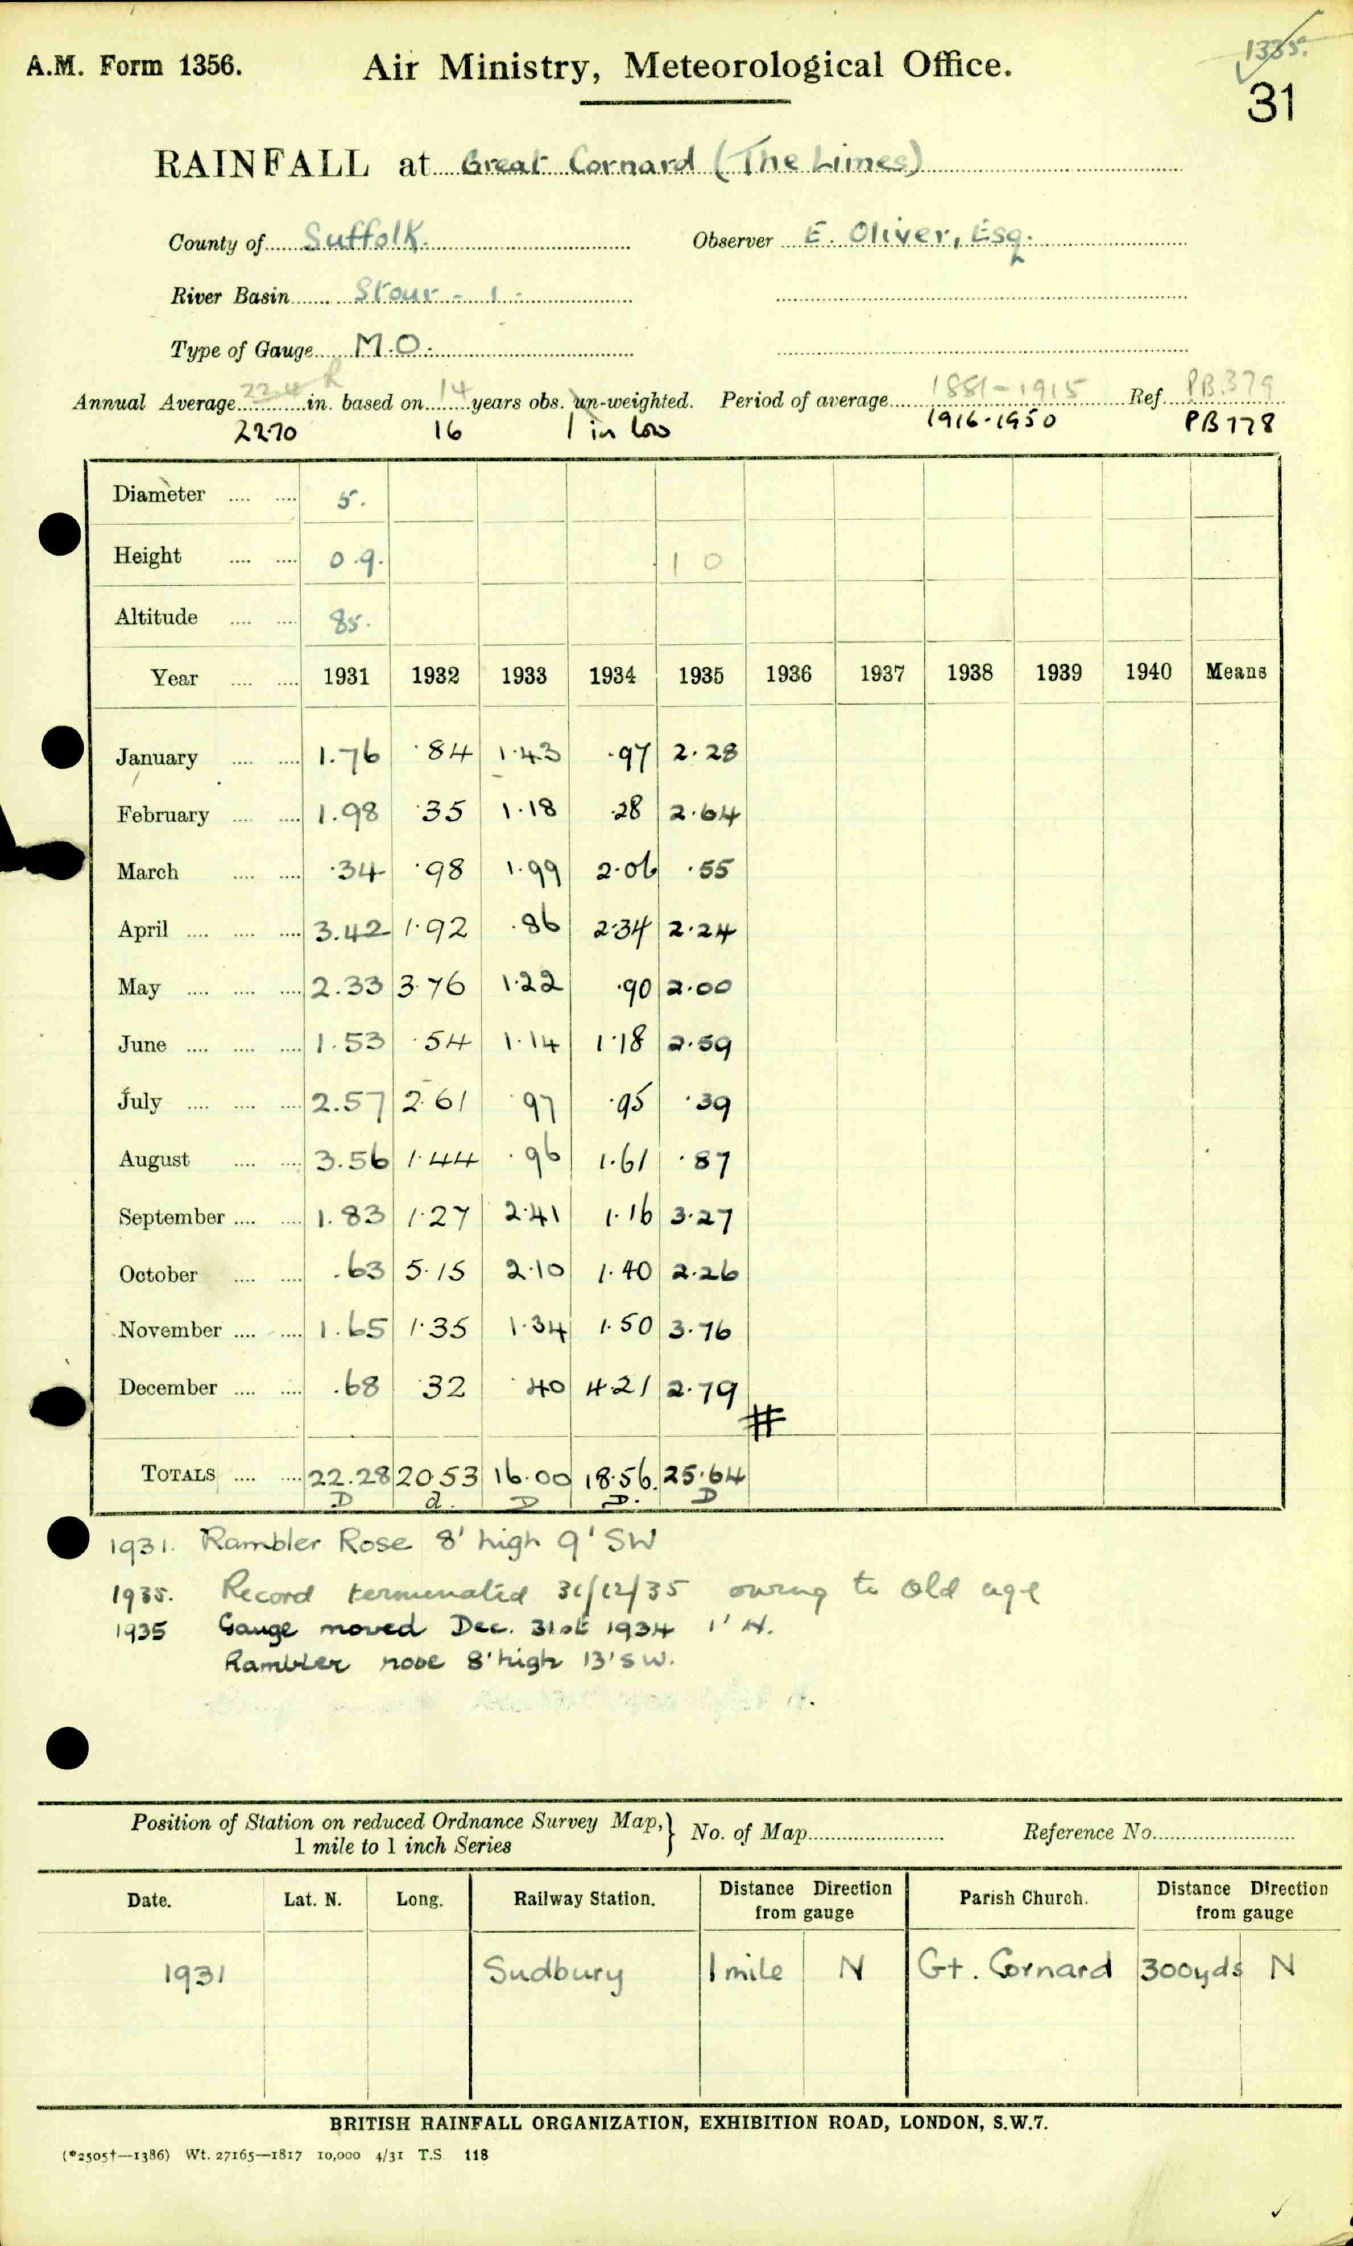 1335.
A.M. Form 1356. Air Ministry, Meteorological Office. 31
RAINFALL at Great Cornard (The Limes)
County of Suffolk. Observer E. Oliver, Esq.
River Basin Stour - 1 -
Type of Gauge M.O.
Annual Average 22.4 R in. based on 14 years obs. un-weighted. Period of average 1881-1915 Ref. PB.379
22.70 16 1 in low 1916-1950 PB778
Diameter 5.
Height 0.9. 1 0
Altitude 85.
Year 1931 1932 1933 1934 1935 1936 1937 1938 1939 1940 Means
January 1.76 .84 1.43 .97 2.28
February 1.98 .35 1.18 .28 2.64
March .34 .98 1.99 2.06 .55
April 3.42 1.92 .86 2.34 2.24
May 2.33 3.76 1.22 .90 2.00
June 1.53 .54 1.14 1.18 2.59
July 2.57 2.61 .97 .95 .39
August 3.56 1.44 .96 1.61 .87
September 1.83 1.27 2.41 1.16 3.27
October .63 5.15 2.10 1.40 2.26
November 1.65 1.35 1.34 1.50 3.76
December .68 .32 .40 4.21 2.79
#
TOTALS 22.28 20.53 16.00 18.56. 25.64
D d. D D. D
1931. Rambler Rose 8' high 9' SW
1935. Record terminated 31/12/35 owing to old age
1935 Gauge moved Dec. 31st 1934 1' N.
Rambler rose 8' high 13' SW.
Position of Station on reduced Ordnance Survey Map, } No. of Map Reference No.
1 mile to 1 inch Series
Date. Lat. N. Long. Railway Station. Distance Direction from gauge Parish Church. Distance Direction from gauge
1931 Sudbury 1 mile N Gt. Cornard 300yds N
BRITISH RAINFALL ORGANIZATION, EXHIBITION ROAD, LONDON, S.W.7.
(*2505†—1386) Wt. 27165—1817 10,000 4/31 T.S. 118